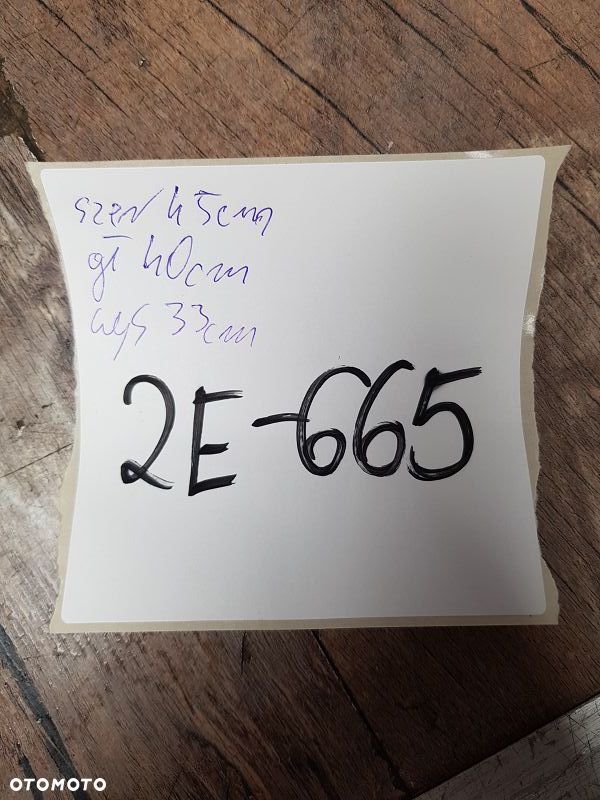 szer 45cm
gł 40cm
wys 33cm
2E-665
OTOMOTO